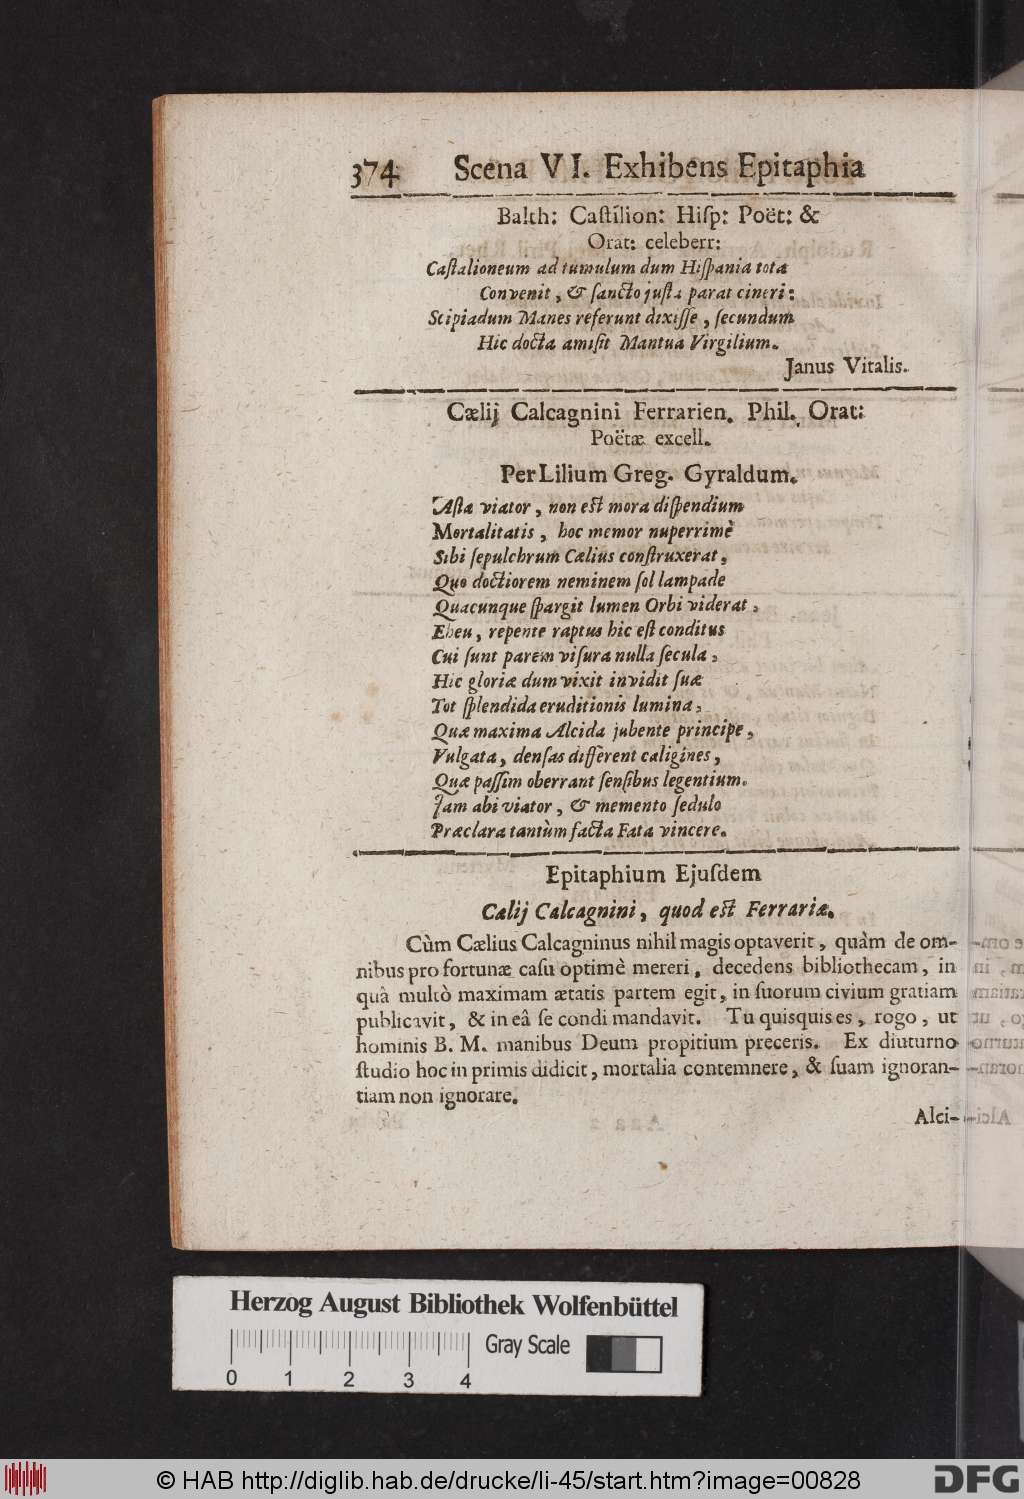 374 Scena VI. Exhibens Epitaphia
Balth: Caſtilion: Hiſp: Poët: &
Orat: celeberr:
Caſtalioneum ad tumulum dum Hiſpania tota
Convenit, & ſancto juſta parat cineri:
Scipiadum Manes referunt dixiſſe, ſecundum
Hic docta amiſit Mantua Virgilium.
Janus Vitalis.
Cælij Calcagnini Ferrarien. Phil. Orat:
Poëtæ excell.
Per Lilium Greg. Gyraldum.
Aſta viator, non eſt mora diſpendium
Mortalitatis, hoc memor nuperrimè
Sibi ſepulchrum Cælius conſtruxerat,
Quo doctiorem neminem ſol lampade
Quacunque ſpargit lumen Orbi viderat,
Eheu, repente raptus hic eſt conditus
Cui ſunt parem viſura nulla ſecula,
Hic gloriæ dum vixit invidit ſuæ
Tot ſplendida eruditionis lumina,
Quæ maxima Alcida jubente principe,
Vulgata, denſas different caligines,
Quæ paſſim oberrant ſenſibus legentium.
Jam abi viator, & memento ſedulo
Præclara tantùm facta Fata vincere.
Epitaphium Ejuſdem
Cælij Calcagnini, quod eſt Ferrariæ.
Cùm Cælius Calcagninus nihil magis optaverit, quàm de om-
nibus pro fortunæ caſu optimè mereri, decedens bibliothecam, in
quâ multò maximam ætatis partem egit, in ſuorum civium gratiam
publicavit, & in eâ ſe condi mandavit. Tu quisquis es, rogo, ut
hominis B. M. manibus Deum propitium preceris. Ex diuturno
ſtudio hoc in primis didicit, mortalia contemnere, & ſuam ignoran-
tiam non ignorare.
Alci-
Herzog August Bibliothek Wolfenbüttel
Gray Scale
0 1 2 3 4
© HAB http://diglib.hab.de/drucke/li-45/start.htm?image=00828
DFG